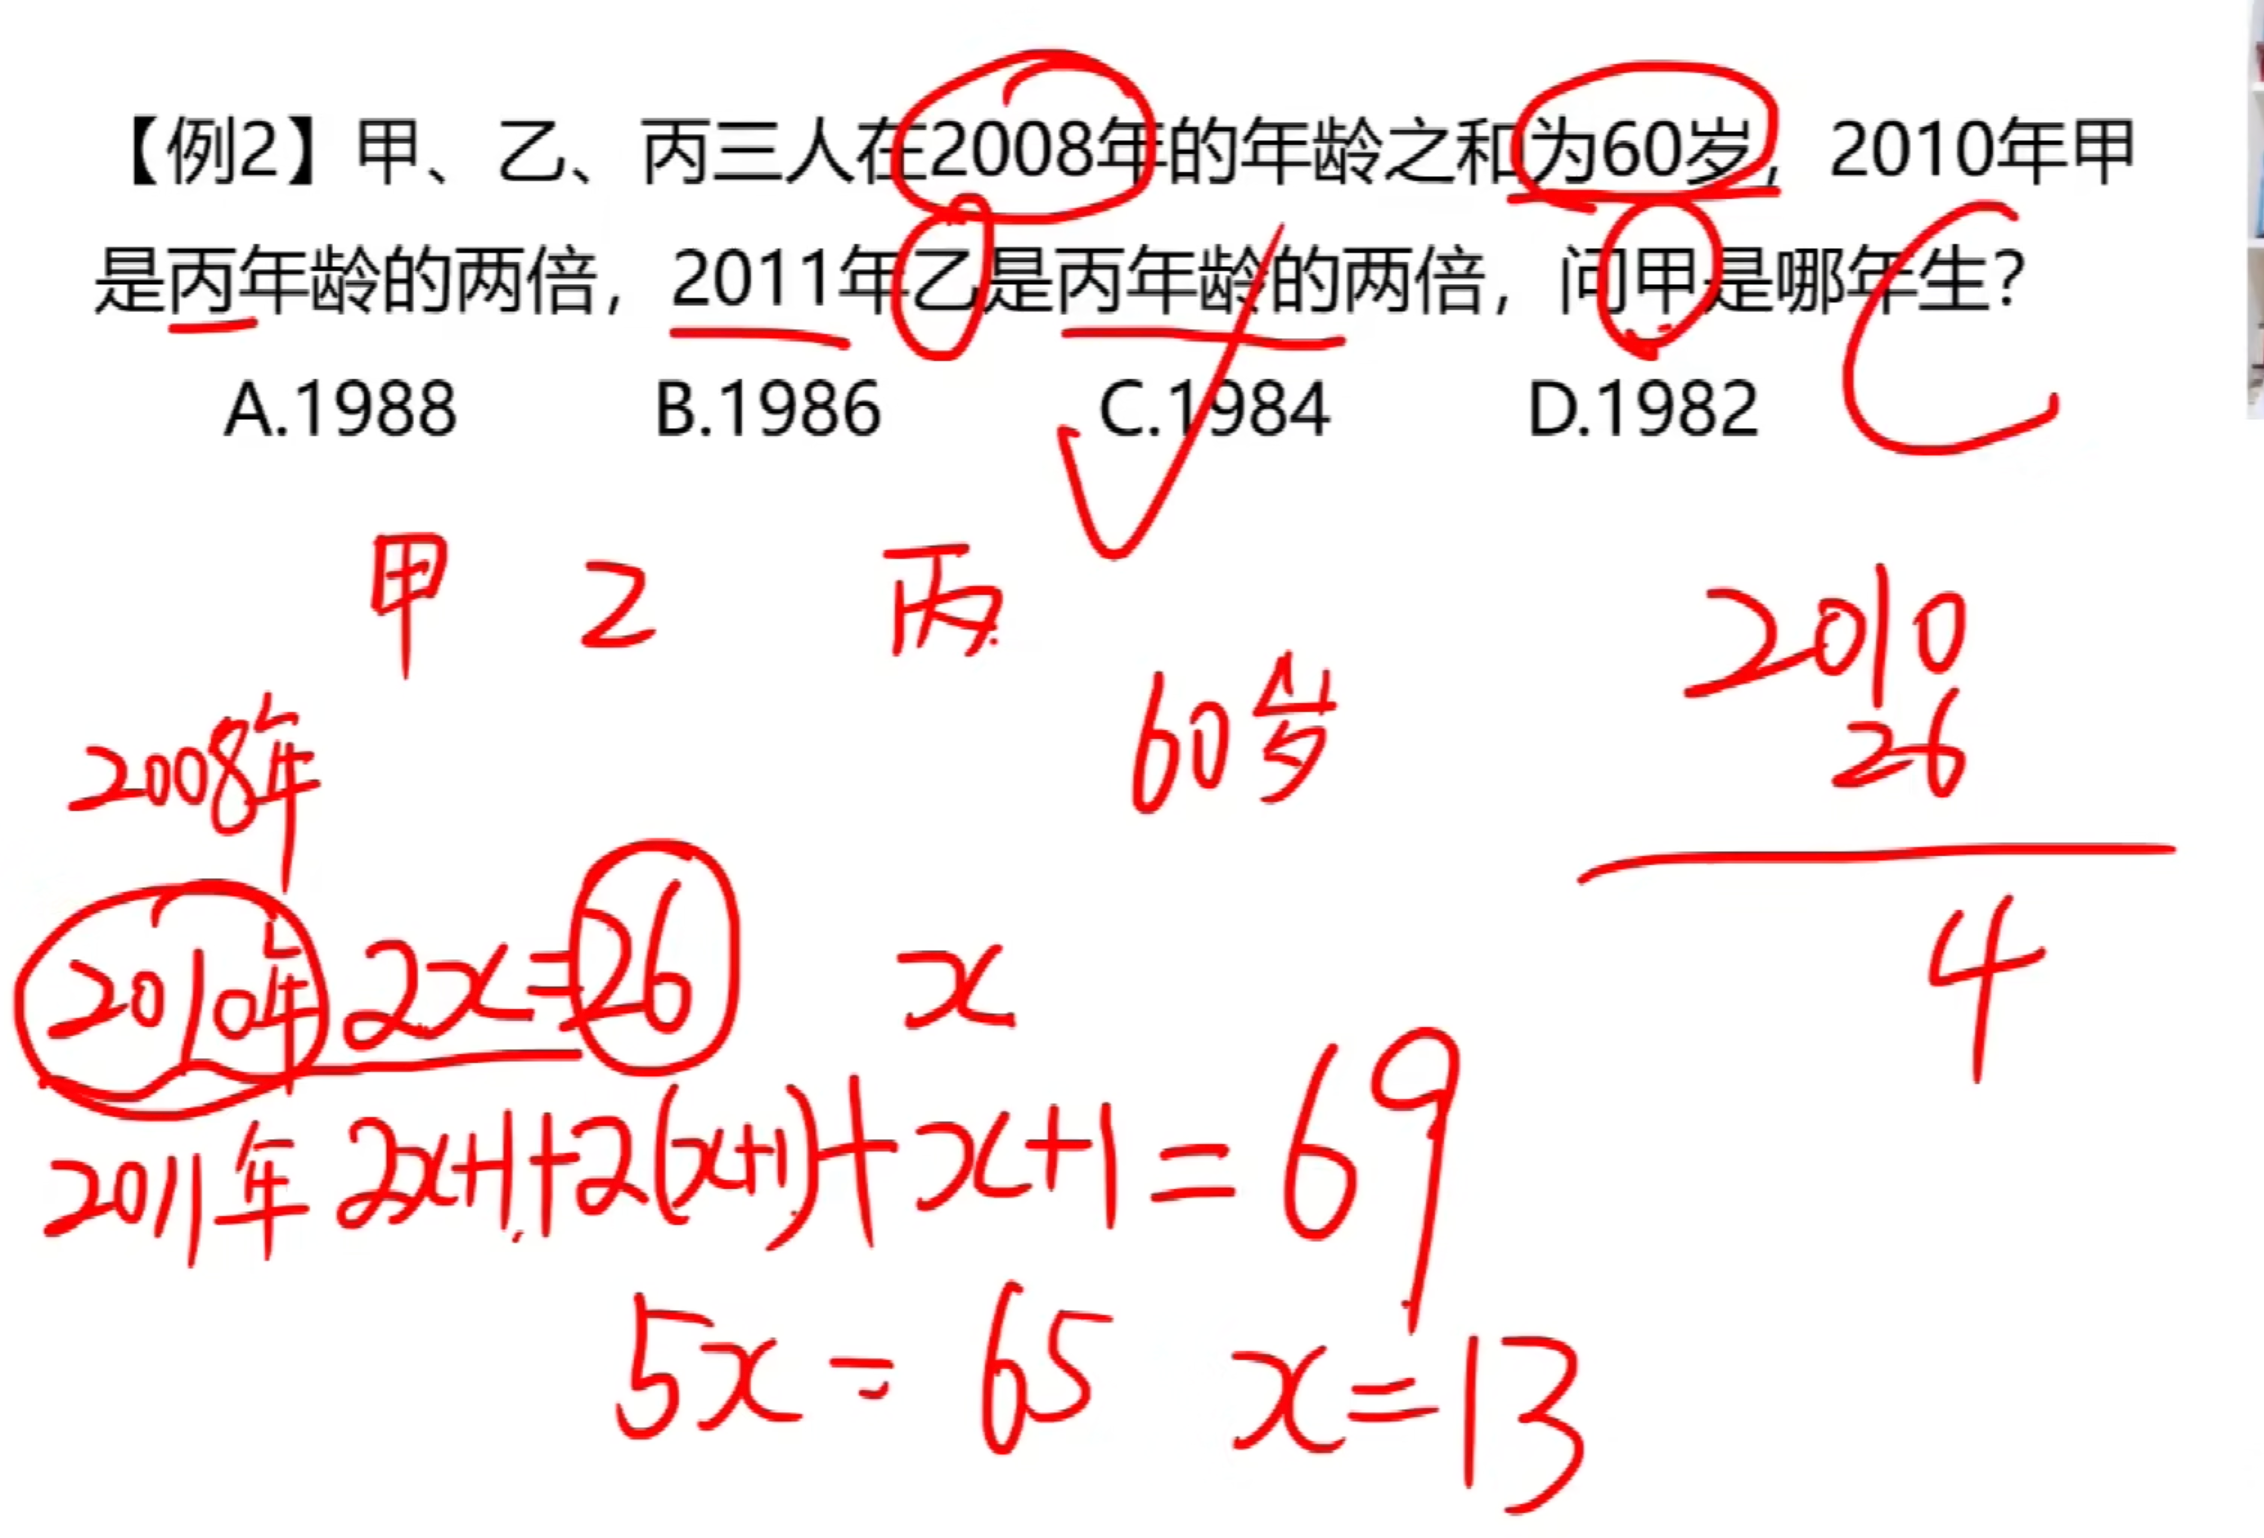 【例2】甲、乙、丙三人在2008年的年龄之和为60岁，2010年甲
是丙年龄的两倍，2011年乙是丙年龄的两倍，问甲是哪年生？
A.1988 B.1986 C.1984 D.1982 C
甲 乙 丙
2008年 60岁
2010年 2x=26 x
2011年 2x+1+2(x+1)+x+1=69
5x=65 x=13
2010
26
4